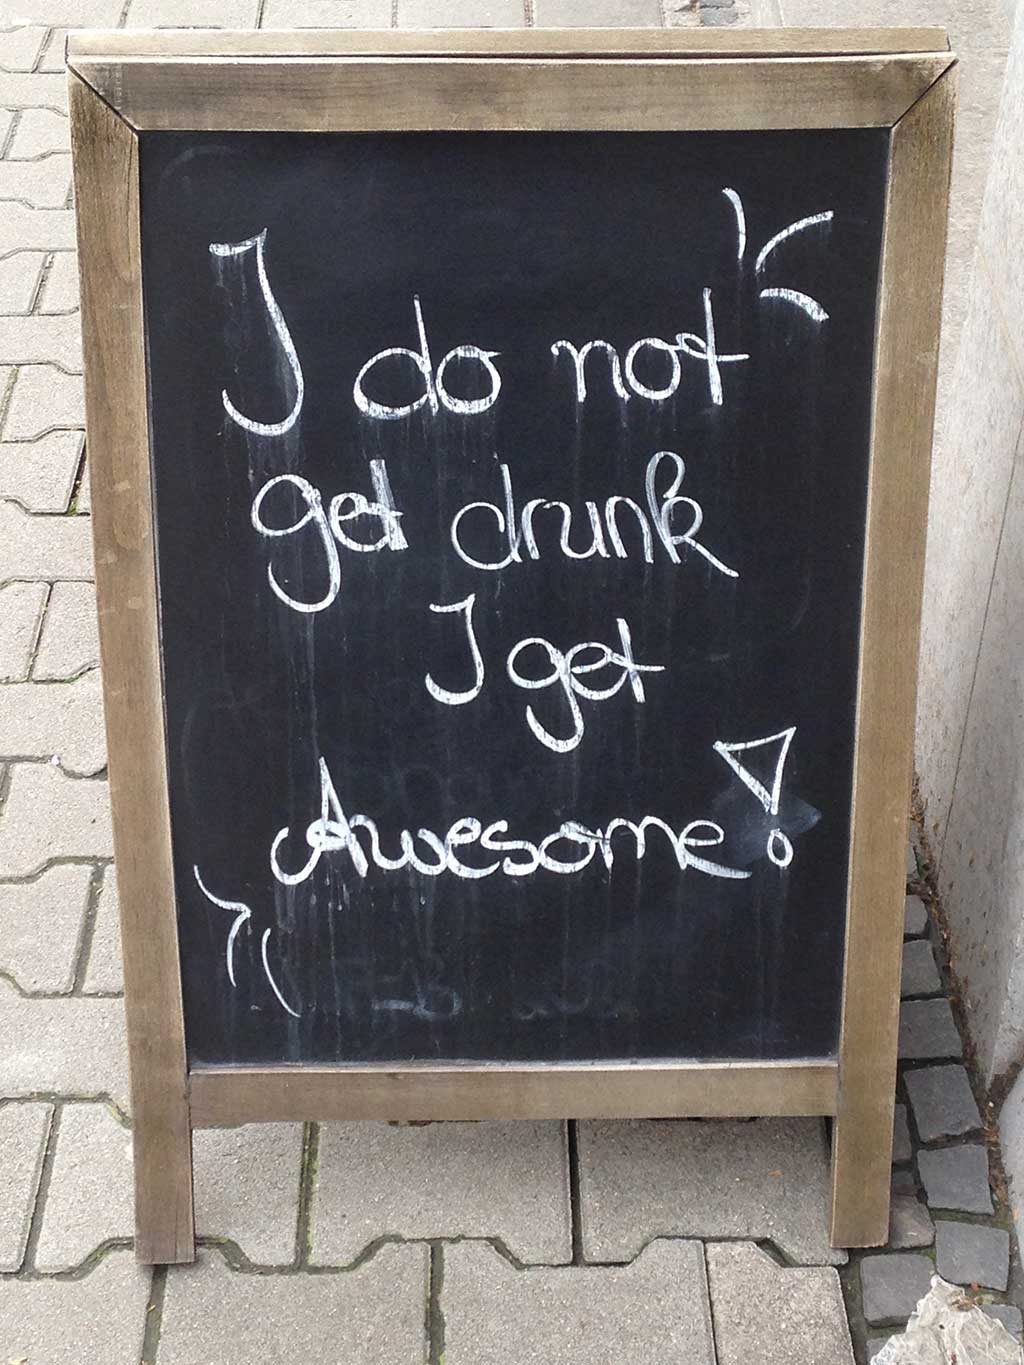 I do not
get drunk
I get
Awesome!